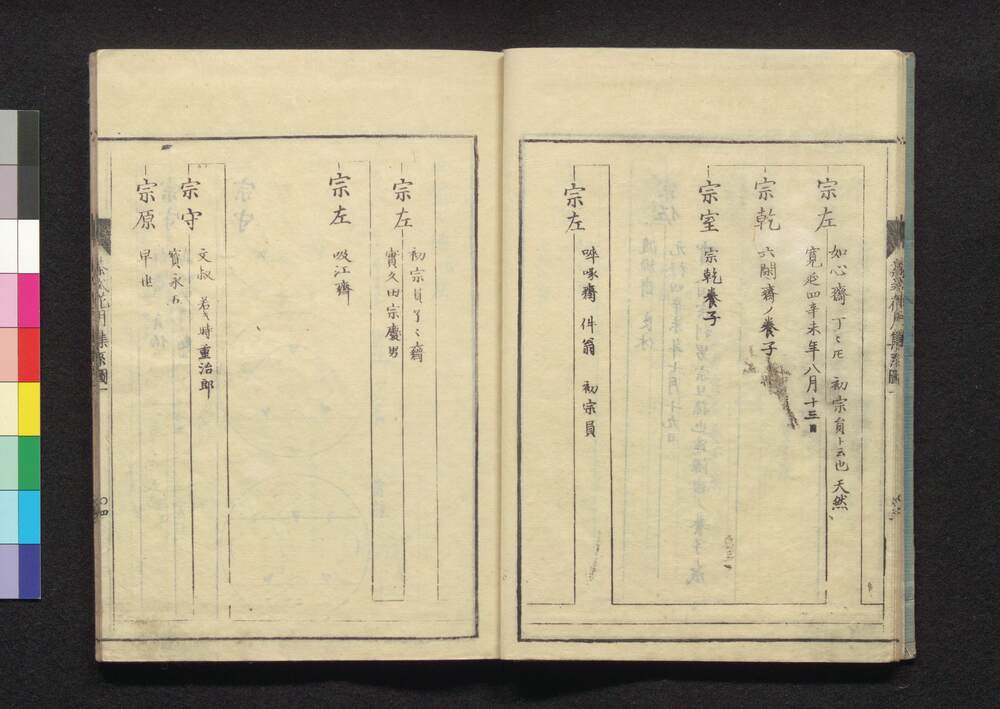 宗左
如心齋 丁々斤 初宗員ト云也 天然
寛延四辛未年八月十三日
宗乾
六閑齋ノ養子
宗室
宗乾養子
宗左
啐啄齋 件翁 初宗員
宗左
初宗員 了々齋
實久田宗慶男
宗左
吸江齋
宗守
文叔 若キ時重治郎
寳永五
宗原
早世